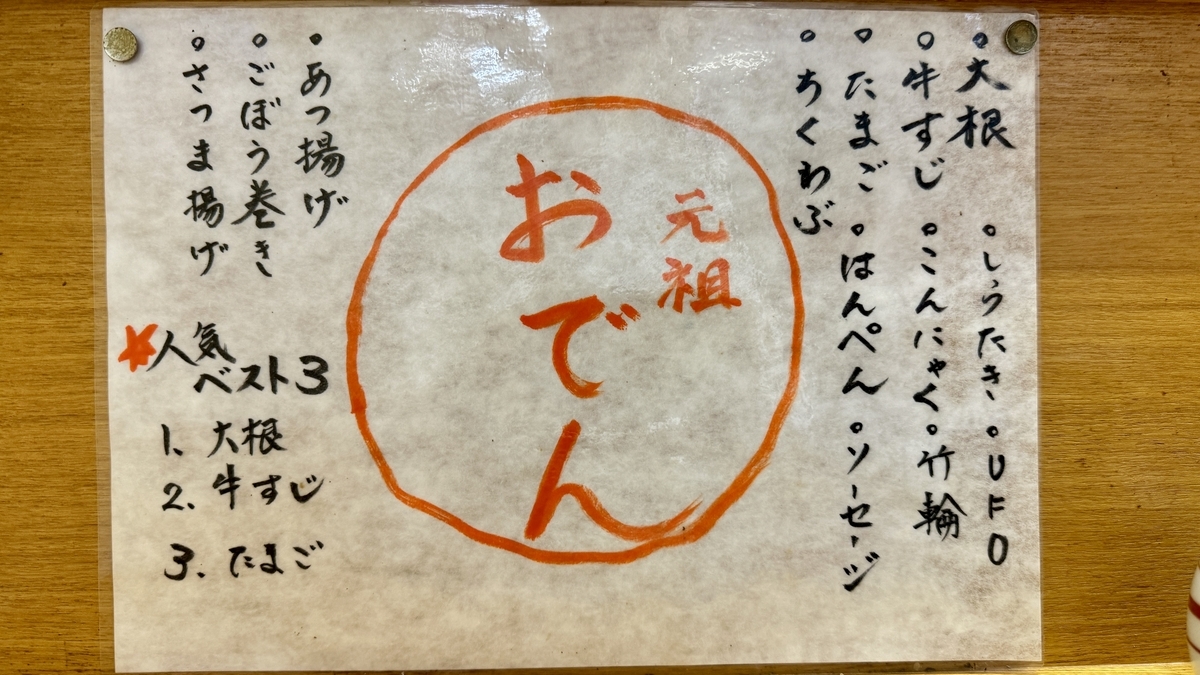 ・大根 ・しらたき ・UFO
・牛すじ ・こんにゃく ・竹輪
・たまご ・はんぺん ・ソーセージ
・ちくわぶ
元祖
おでん
・あつ揚げ
・ごぼう巻き
・さつま揚げ
人気
ベスト3
1. 大根
2. 牛すじ
3. たまご